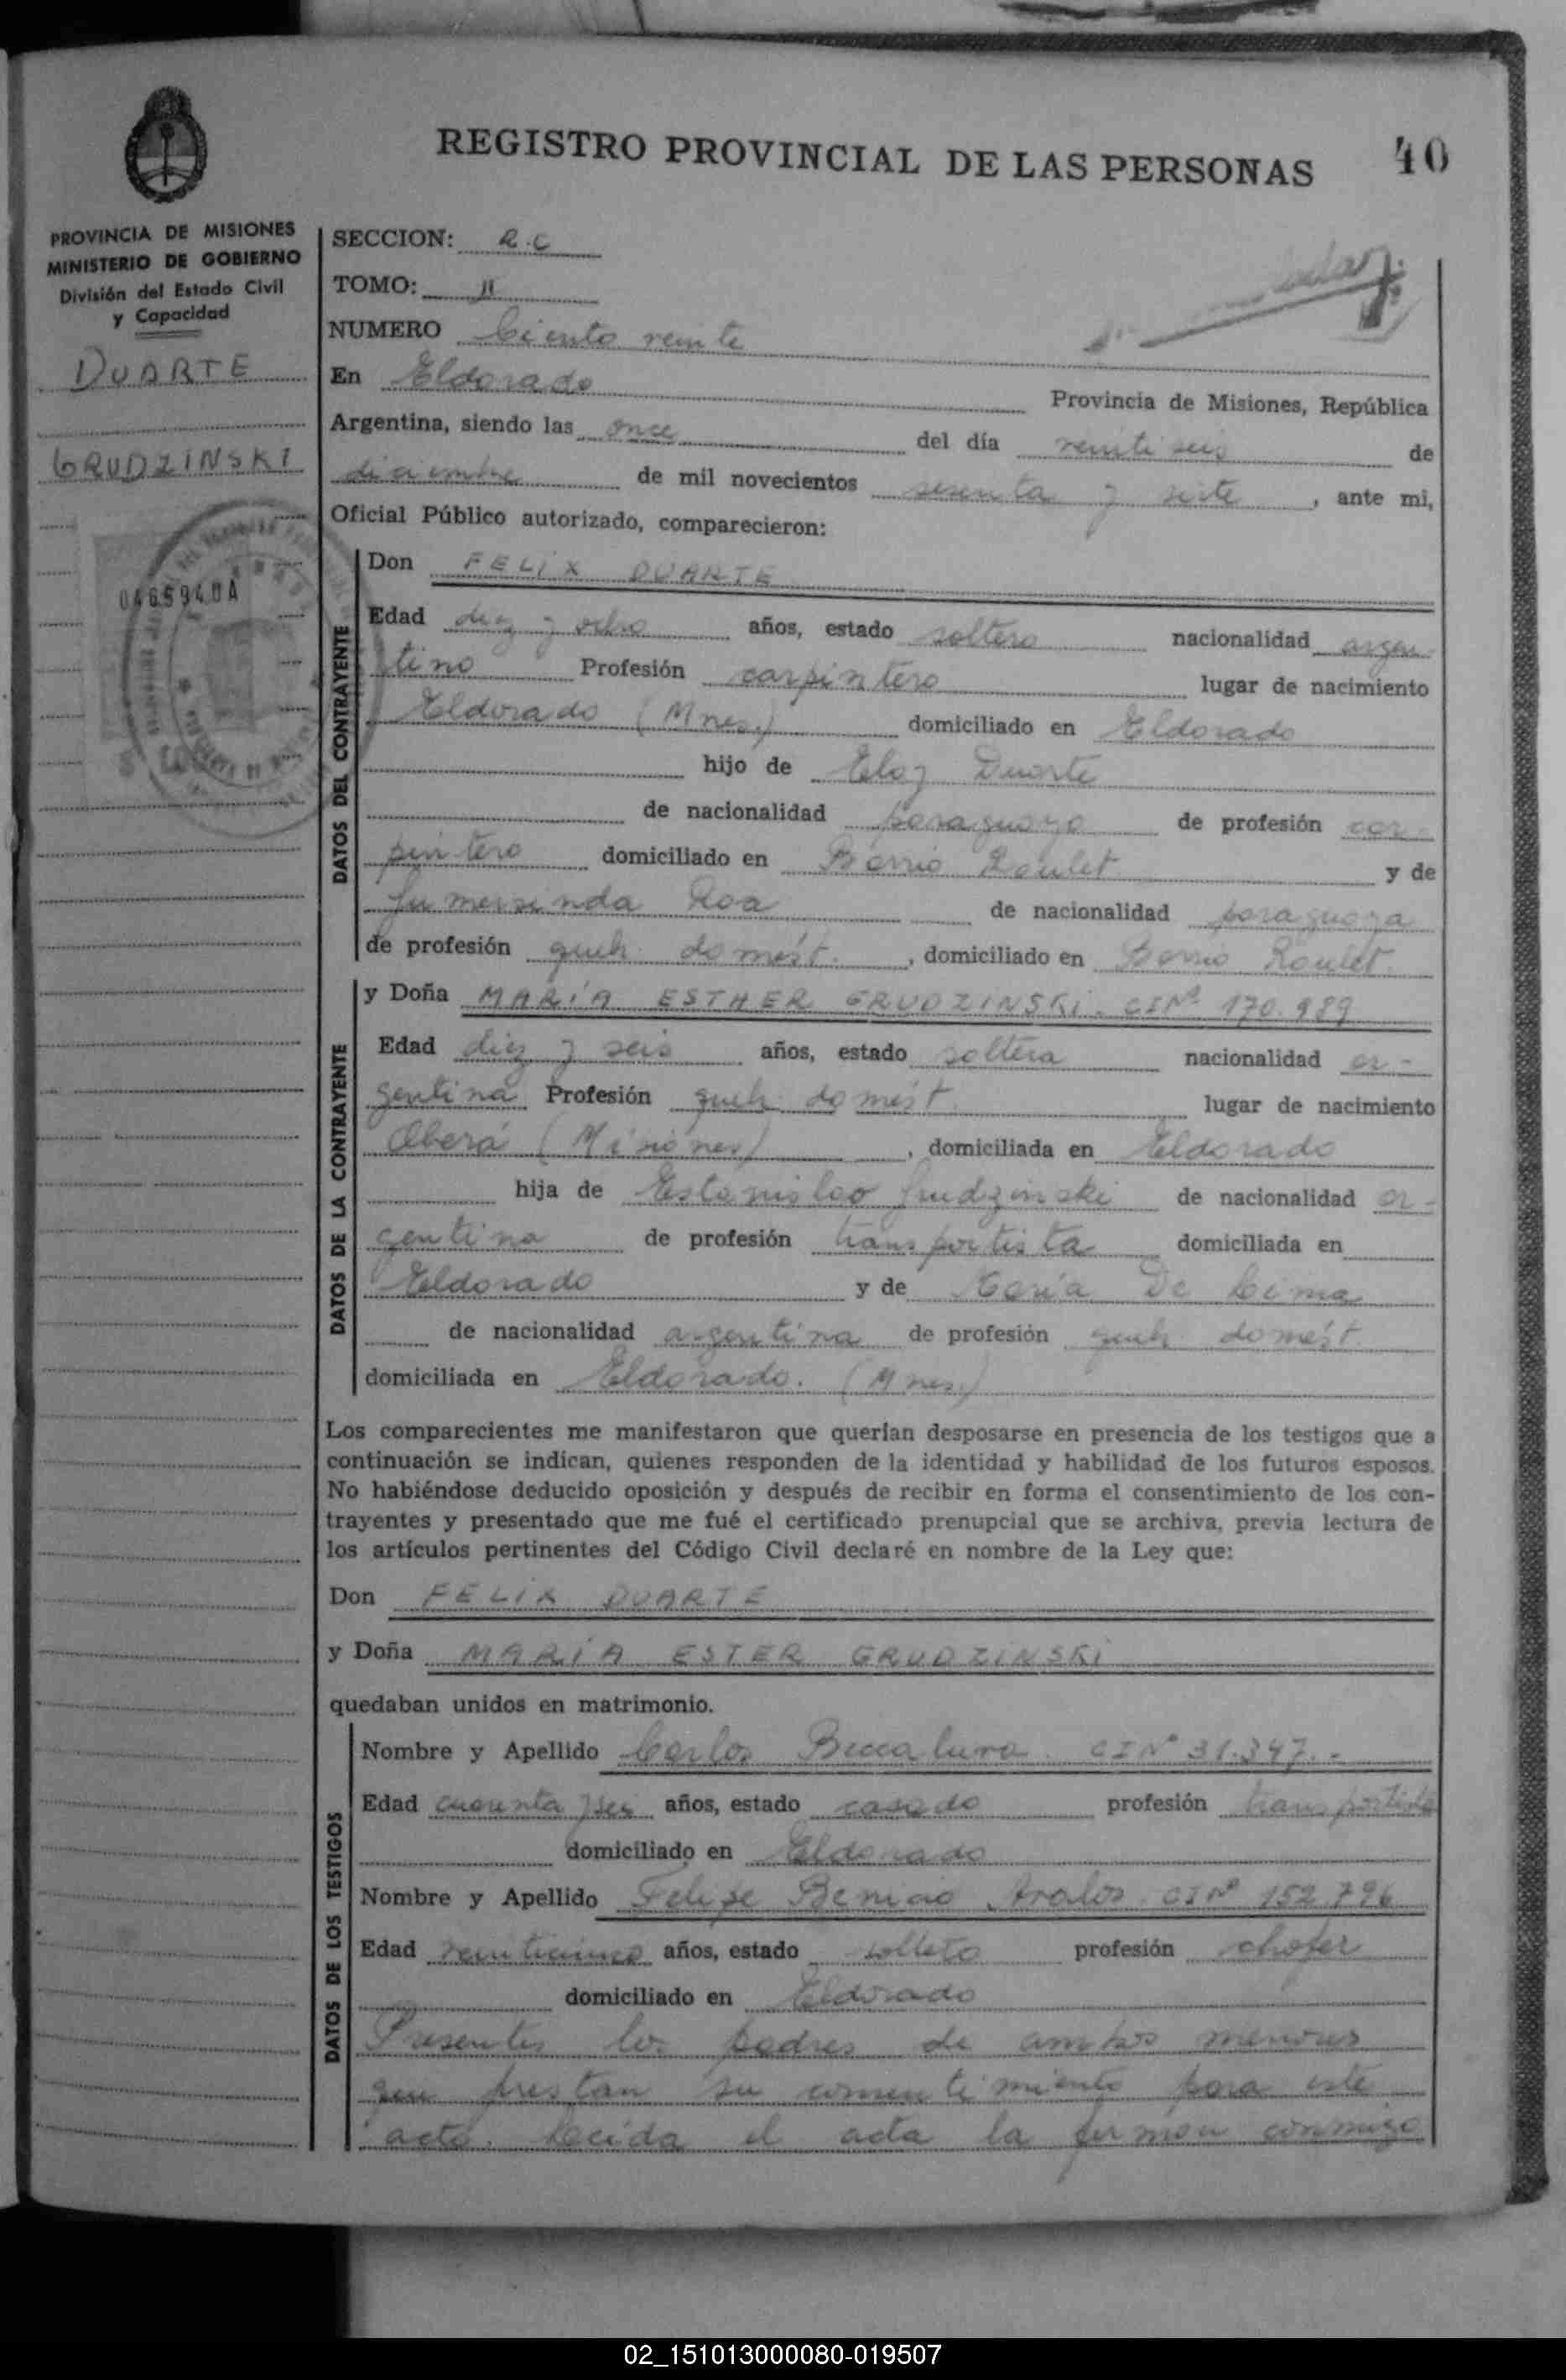 REGISTRO PROVINCIAL DE LAS PERSONAS
40
PROVINCIA DE MISIONES
MINISTERIO DE GOBIERNO
División del Estado Civil
y Capacidad
DUARTE
GRUDZINSKI
0465940A
SECCION: R.C
TOMO: II
NUMERO Ciento veinte
En Eldorado
Provincia de Misiones, República
Argentina, siendo las once del día veinti seis de
diciembre de mil novecientos sesenta y siete, ante mi,
Oficial Público autorizado, comparecieron:
DATOS DEL CONTRAYENTE
Don FELIX DUARTE
Edad diez y ocho años, estado soltero nacionalidad argen
tino Profesión carpintero lugar de nacimiento
Eldorado (Mnes.) domiciliado en Eldorado
hijo de Eloy Duarte
de nacionalidad paraguaya de profesión car-
pintero domiciliado en Barrio Roulet y de
Gumersinda Roa de nacionalidad paraguaya
de profesión queh. domést., domiciliado en Barrio Roulet.
DATOS DE LA CONTRAYENTE
y Doña MARÍA ESTHER GRUDZINSKI. CI Nº 170.989
Edad diez y seis años, estado soltera nacionalidad ar-
gentina Profesión queh. domést. lugar de nacimiento
Oberá (Misiones), domiciliada en Eldorado
hija de Estanislao Grudzinski de nacionalidad ar-
gentina de profesión transportista domiciliada en
Eldorado y de María De Lima
de nacionalidad argentina de profesión queh. domést.
domiciliada en Eldorado. (Mnes.)
Los comparecientes me manifestaron que querían desposarse en presencia de los testigos que a
continuación se indican, quienes responden de la identidad y habilidad de los futuros esposos.
No habiéndose deducido oposición y después de recibir en forma el consentimiento de los con-
trayentes y presentado que me fué el certificado prenupcial que se archiva, previa lectura de
los artículos pertinentes del Código Civil declaré en nombre de la Ley que:
Don FELIX DUARTE
y Doña MARÍA ESTER GRUDZINSKI
quedaban unidos en matrimonio.
DATOS DE LOS TESTIGOS
Nombre y Apellido Carlos CI Nº 31.347.-
Edad cuarenta y seis años, estado casado profesión transportista
domiciliado en Eldorado
Nombre y Apellido Felipe Benicio Avalos CI Nº 152.796
Edad veinticinco años, estado soltero profesión chofer
domiciliado en Eldorado
Presentes los padres de ambos menores
que prestan su consentimiento para este
acto. Leída el acta la firman conmigo
02_151013000080-019507